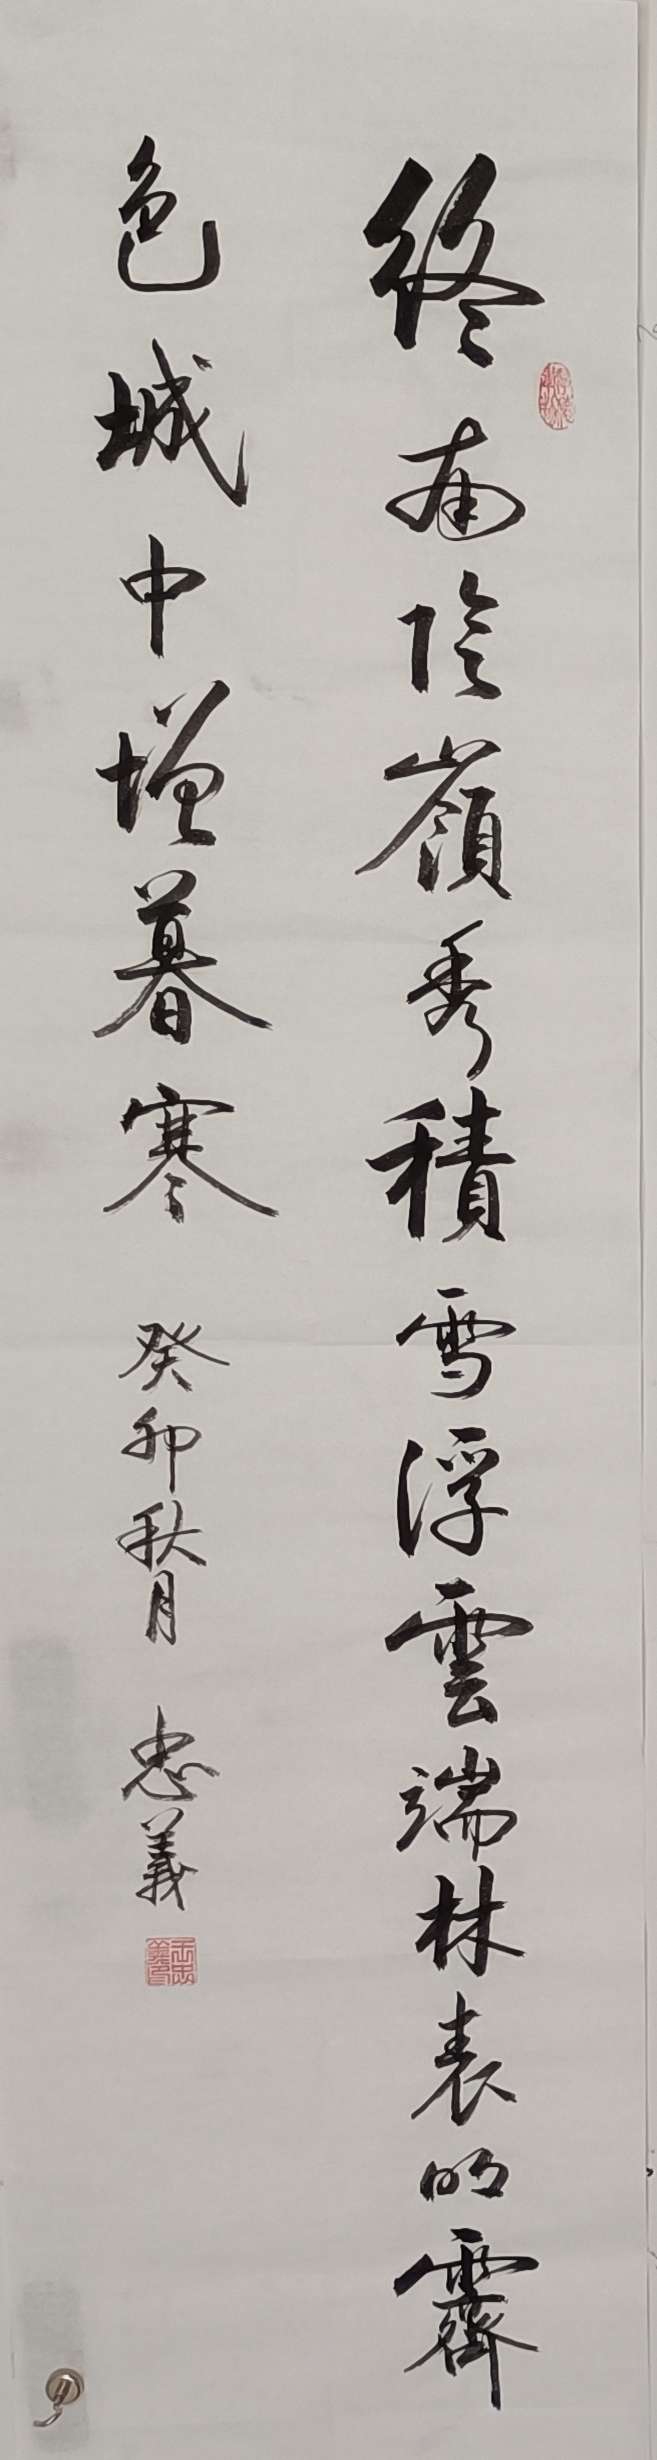 終南陰嶺秀積雪浮雲端林表明霽
色城中增暮寒 癸卯秋月 忠義